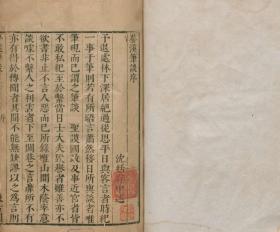 夢溪筆談序
沈括存中述
予退處林下深居絶過從思平日與客言者時紀
一事于筆則若有所晤言蕭然移日所與談者唯
筆硯而已謂之筆談 聖謨國政及事近宮省皆
不敢私紀至於繫當日士大夫毁譽者雖善亦不
欲書非止不言人惡而已所錄唯山間木蔭率意
談噱不繫人之利害者下至閭巷之言靡所不有
亦有得於傳聞者其間不能無缺謬以之爲言則